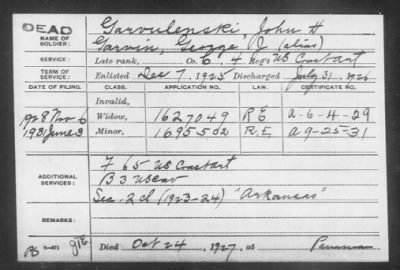 DEAD
NAME OF SOLDIER: Garvulenski, John H
Garvin, George J (alias)
SERVICE: Late rank, Co. C, 4 Reg't US Coast art
TERM OF SERVICE: Enlisted Dec 7, 1925 Discharged July 31, 1926
DATE OF FILING. CLASS. APPLICATION NO. LAW. CERTIFICATE NO.
Invalid,
1928 Nov 6 Widow, 1627049 R E A-6-4-29
1931 June 3 Minor, 1695502 R.E. A 9-25-31
ADDITIONAL SERVICES:
F 65 US Coast art
B 3 US Cav
Sea. 2 cl (1923-24) "Arkansas"
REMARKS:
Died Oct 24, 1927, at Panama